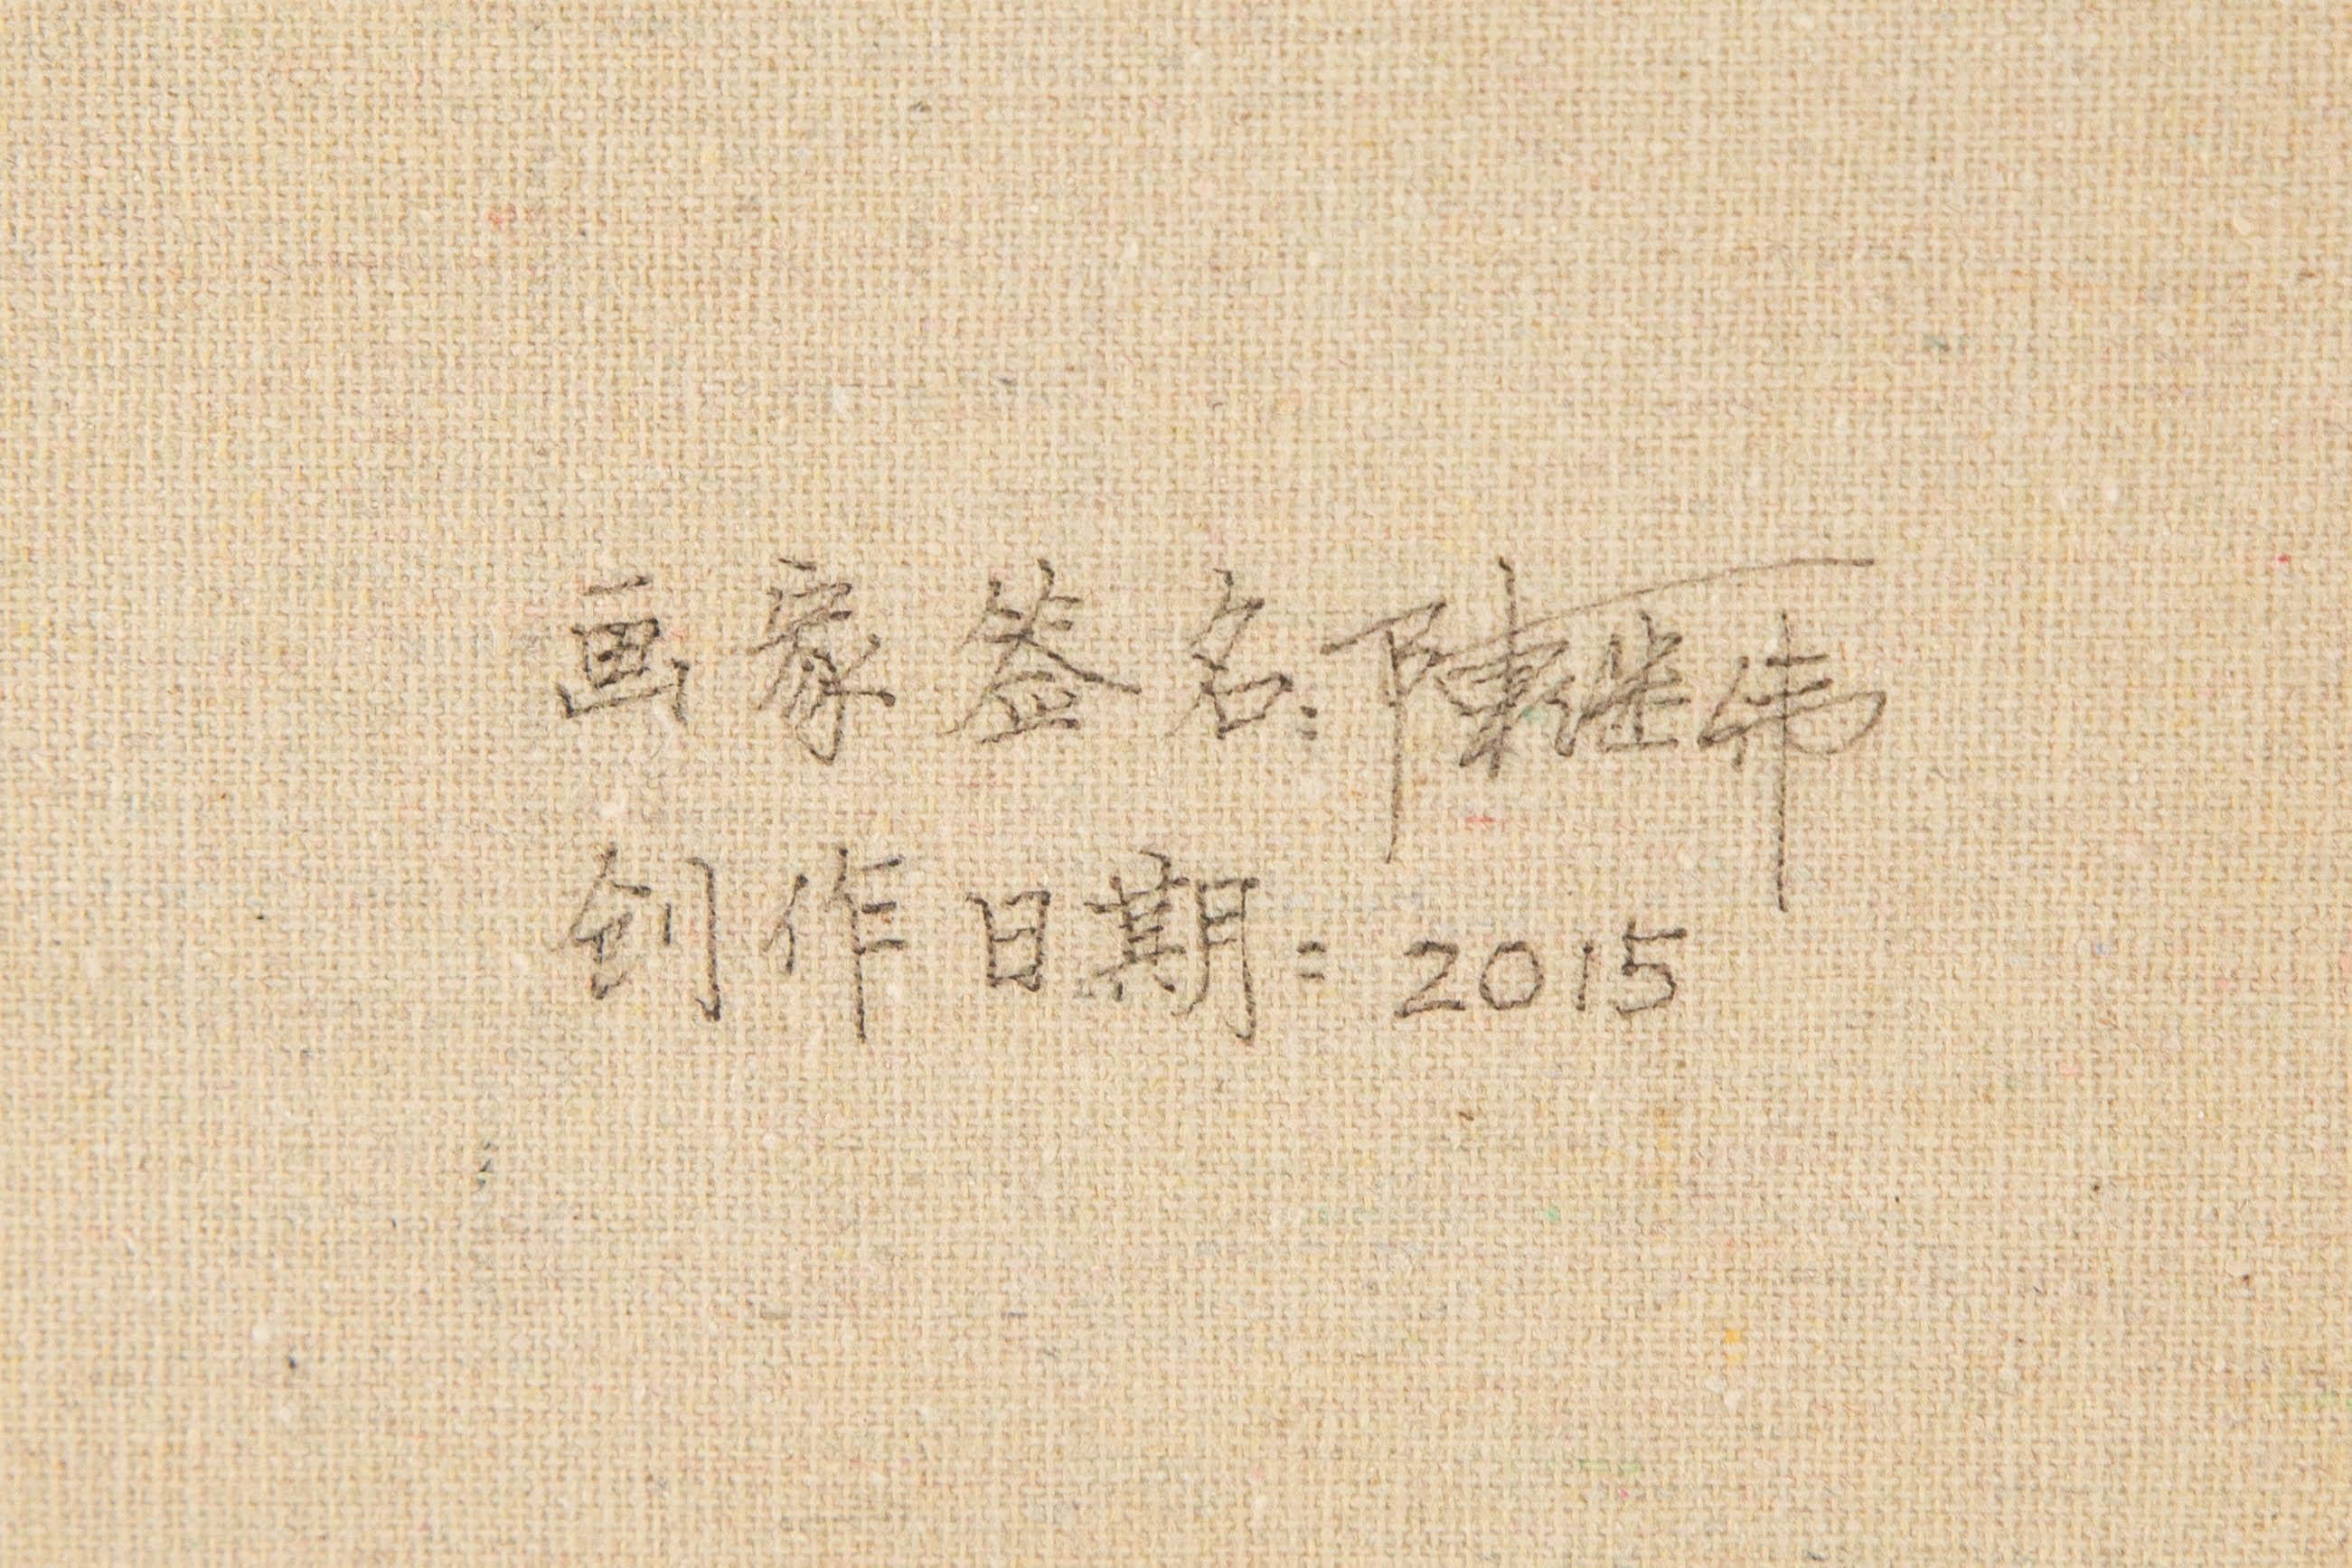 画家签名:陳继伟
创作日期:2015